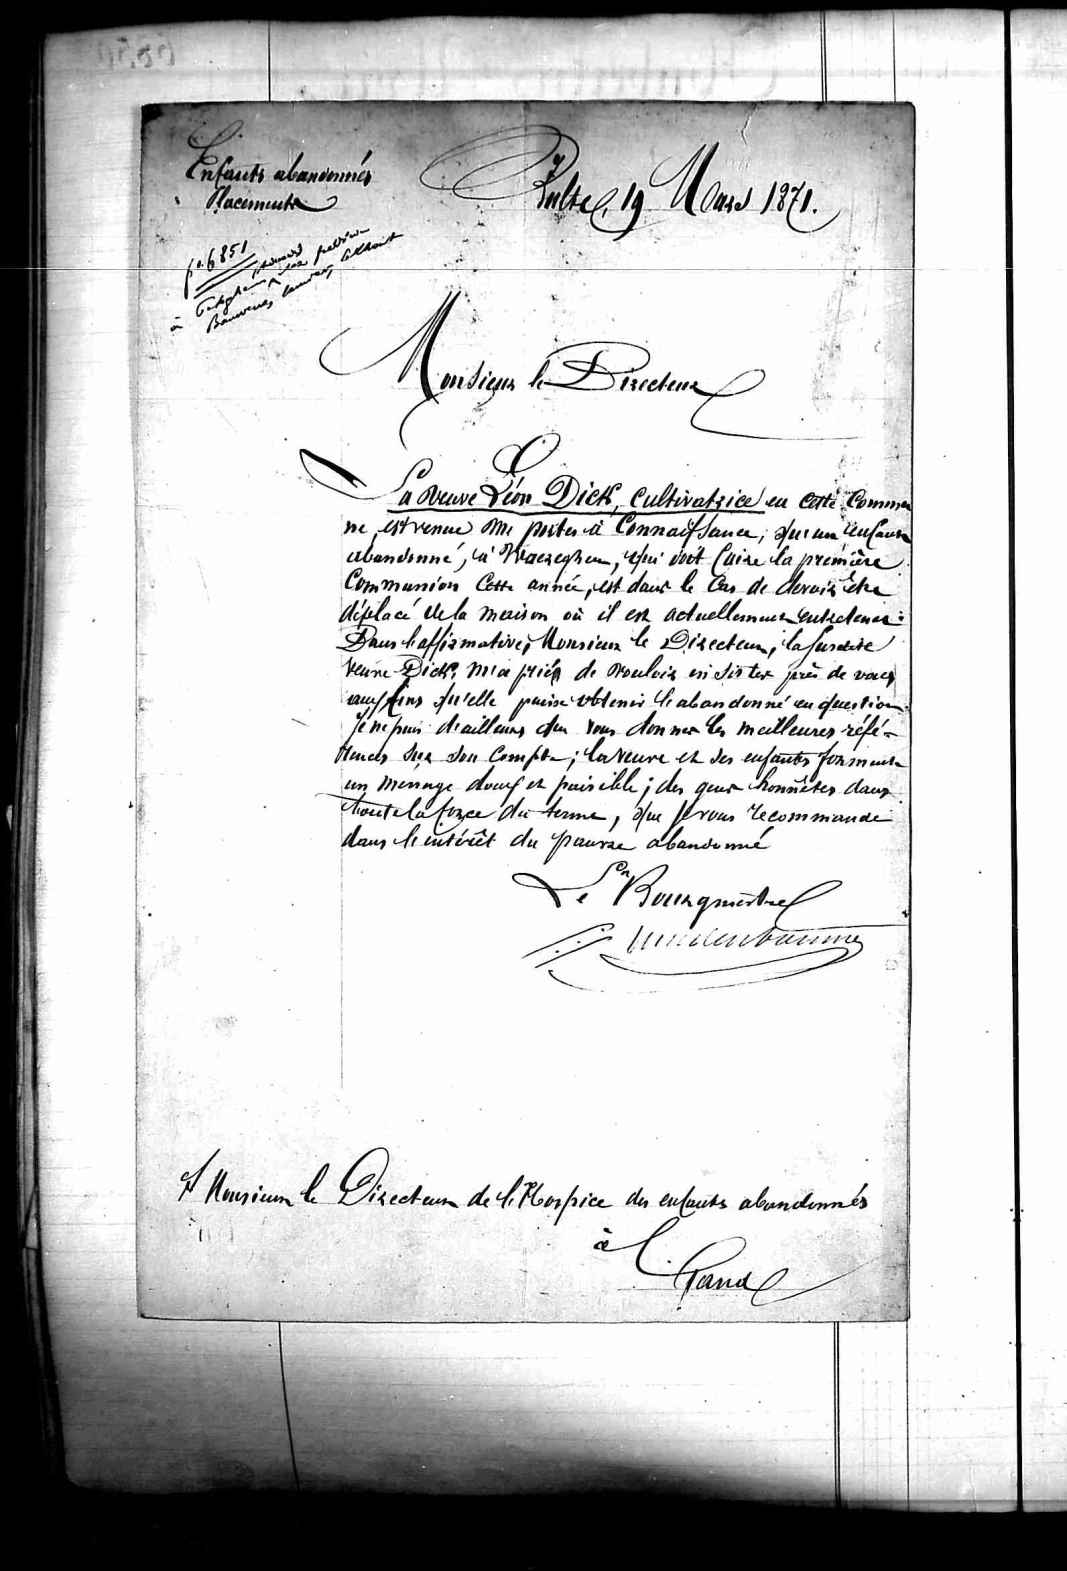 Enfants abandonnés
Placements
Zulte, 19 Mars 1871.
p. 6851
Monsieur le Directeur
La veuve Léon Dick, cultivatrice en cette Commu
ne, est venue me porter à Connaissance, qu'un enfant
abandonné, à Waereghem, qui doit faire la première
Communion cette année, est dans le Cas de devoir être
déplacé de la maison où il est actuellement entretenu.
Dans l'affirmative, Monsieur le Directeur, la susdite
veuve Dick, m'a prié de vouloir insister près de vous
aux fins qu'elle puisse obtenir l'abandonné en question.
Je ne puis d'ailleurs que vous donner les meilleures réfé-
rences sur son Compte; la veuve et ses enfants forment
un ménage doux et paisible; des gens honnêtes dans
toute la force du terme, que je vous recommande
dans l'intérêt du pauvre abandonné
Le Bourgmestre
A Monsieur le Directeur de l'Hospice des enfants abandonnés
à
Gand